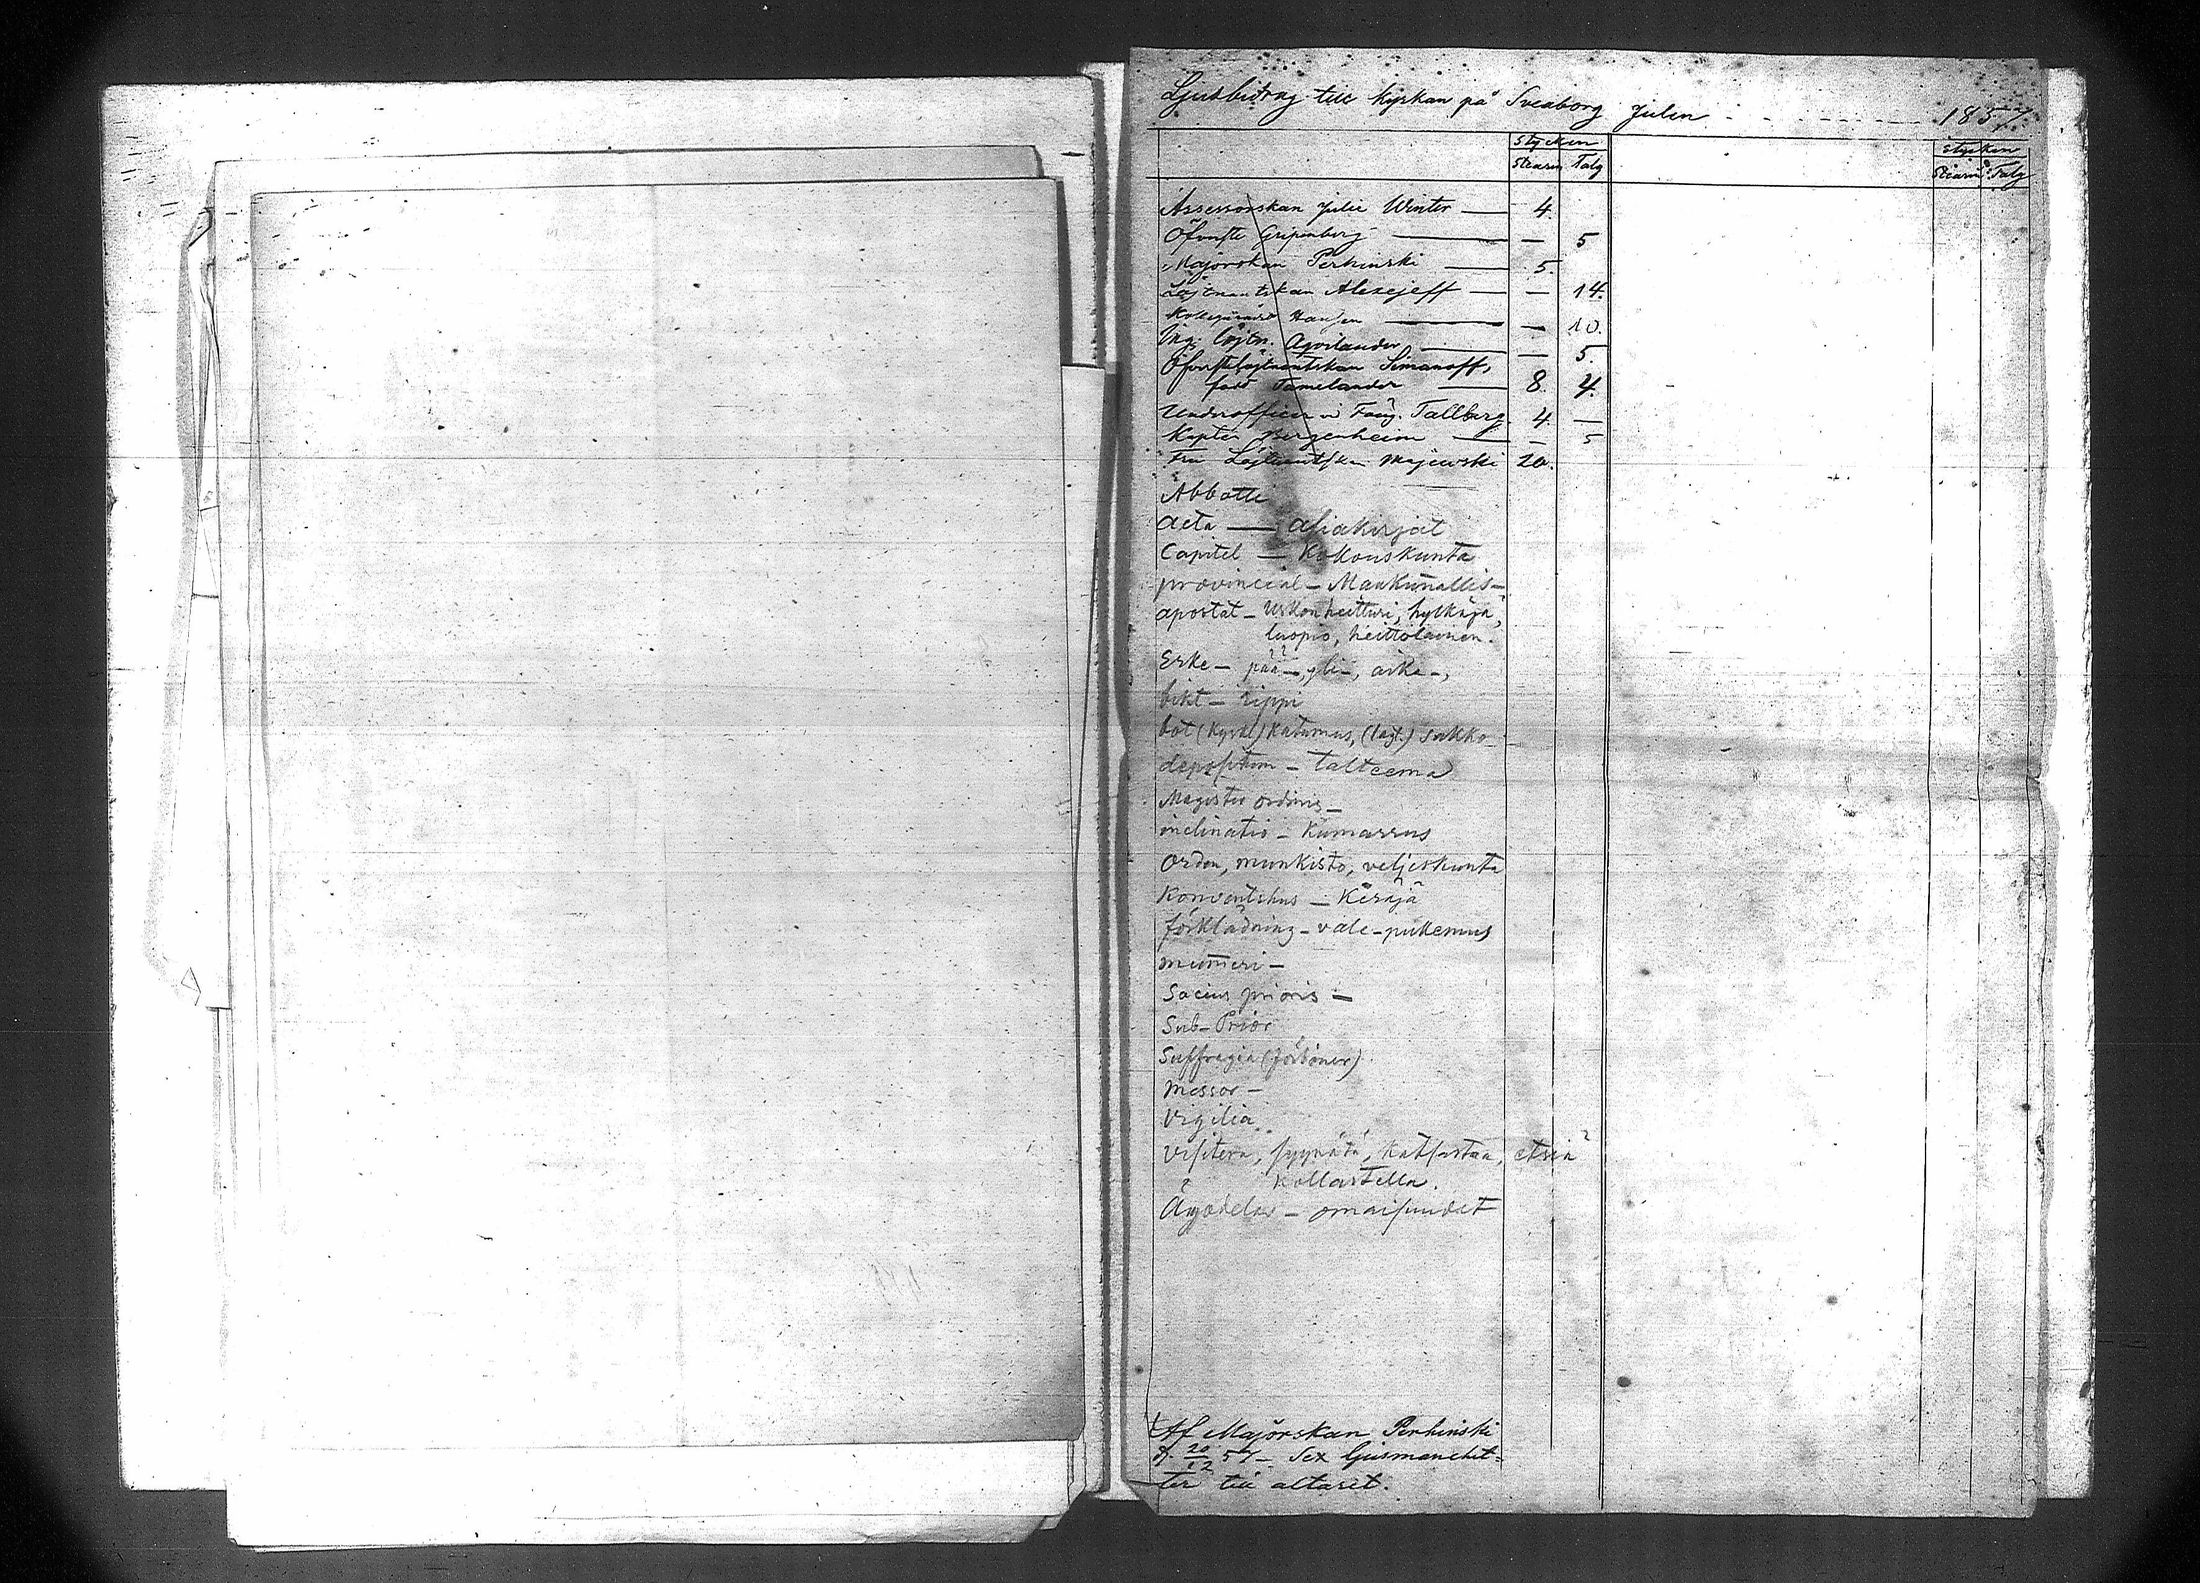 Ljusbidrag till kyrkan på Sveaborg Julen - - - - - - - - 1857.
Stycken Stycken
Stearin Talg Stearin Talg
Assessorskan Julie Winter — 4.
Öfverste Gripenberg — — 5
Majorskan Perhinski — 5.
Löjtnantskan Alexejeff — — 14.
Hansen — — 10.
Ing. Löjtn. Aqvilander — — 5.
Öfverstelöjtnantskan Simanoff,
född Tamelander — 8. 4.
Underofficer vi Fång. Tallberg 4. —
Kapten Bergenheim — — 5
Fru Löjtnantskan Majewski 20.
Abbotti
Acta — Asiakirjat
Capitel — Kokouskunta
provincial — Maakunnallis-
apostat — Uskonheittiri, hylkääjä,
luopio, heittoläinen.
Erke — pää-, yli-, arke-,
bikt — rippi
bot (kyrkl) katumus, (lagt.) sakko
depositum — talteema
Magister ordinis —
inclinatio — Kumarrus
Orden, munkisto, veljeskunta
Konventshus — Keräjä
förklädning — vale-pukemus
mummeri —
Socius prioris —
Sub-Prior
Suffragia (förböner)
Messor —
Vigilia
Visitera, syynätä, katsastaa, etsiä?
kollastella.
Ägodelar — omaisuudet
Af Majorskan Perhinski
d. 20/12 57 — Sex ljusmanchet-
ter till altaret.